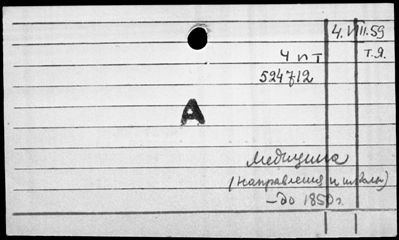 4.VIII.59
Ч п т Т.Я.
524712
А
Медицина
(направления и школы)
– до 1850 г.